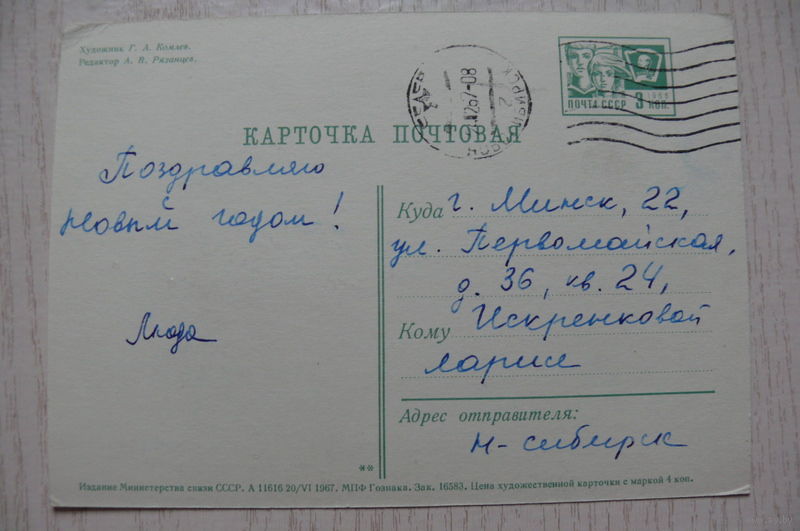 Художник Г. А. Комлев.
Редактор А. В. Рязанцев.
1966
ПОЧТА СССР 3 КОП.
КАРТОЧКА ПОЧТОВАЯ
Поздравляю
с
Новым годом!
Люда
Куда г. Минск, 22,
ул. Первомайская,
д. 36, кв. 24,
Кому Искренковой
Ларисе
Адрес отправителя:
Н-сибирск
**
Издание Министерства связи СССР. А 11616 20/VI 1967. МПФ Гознака. Зак. 16583. Цена художественной карточки с маркой 4 коп.